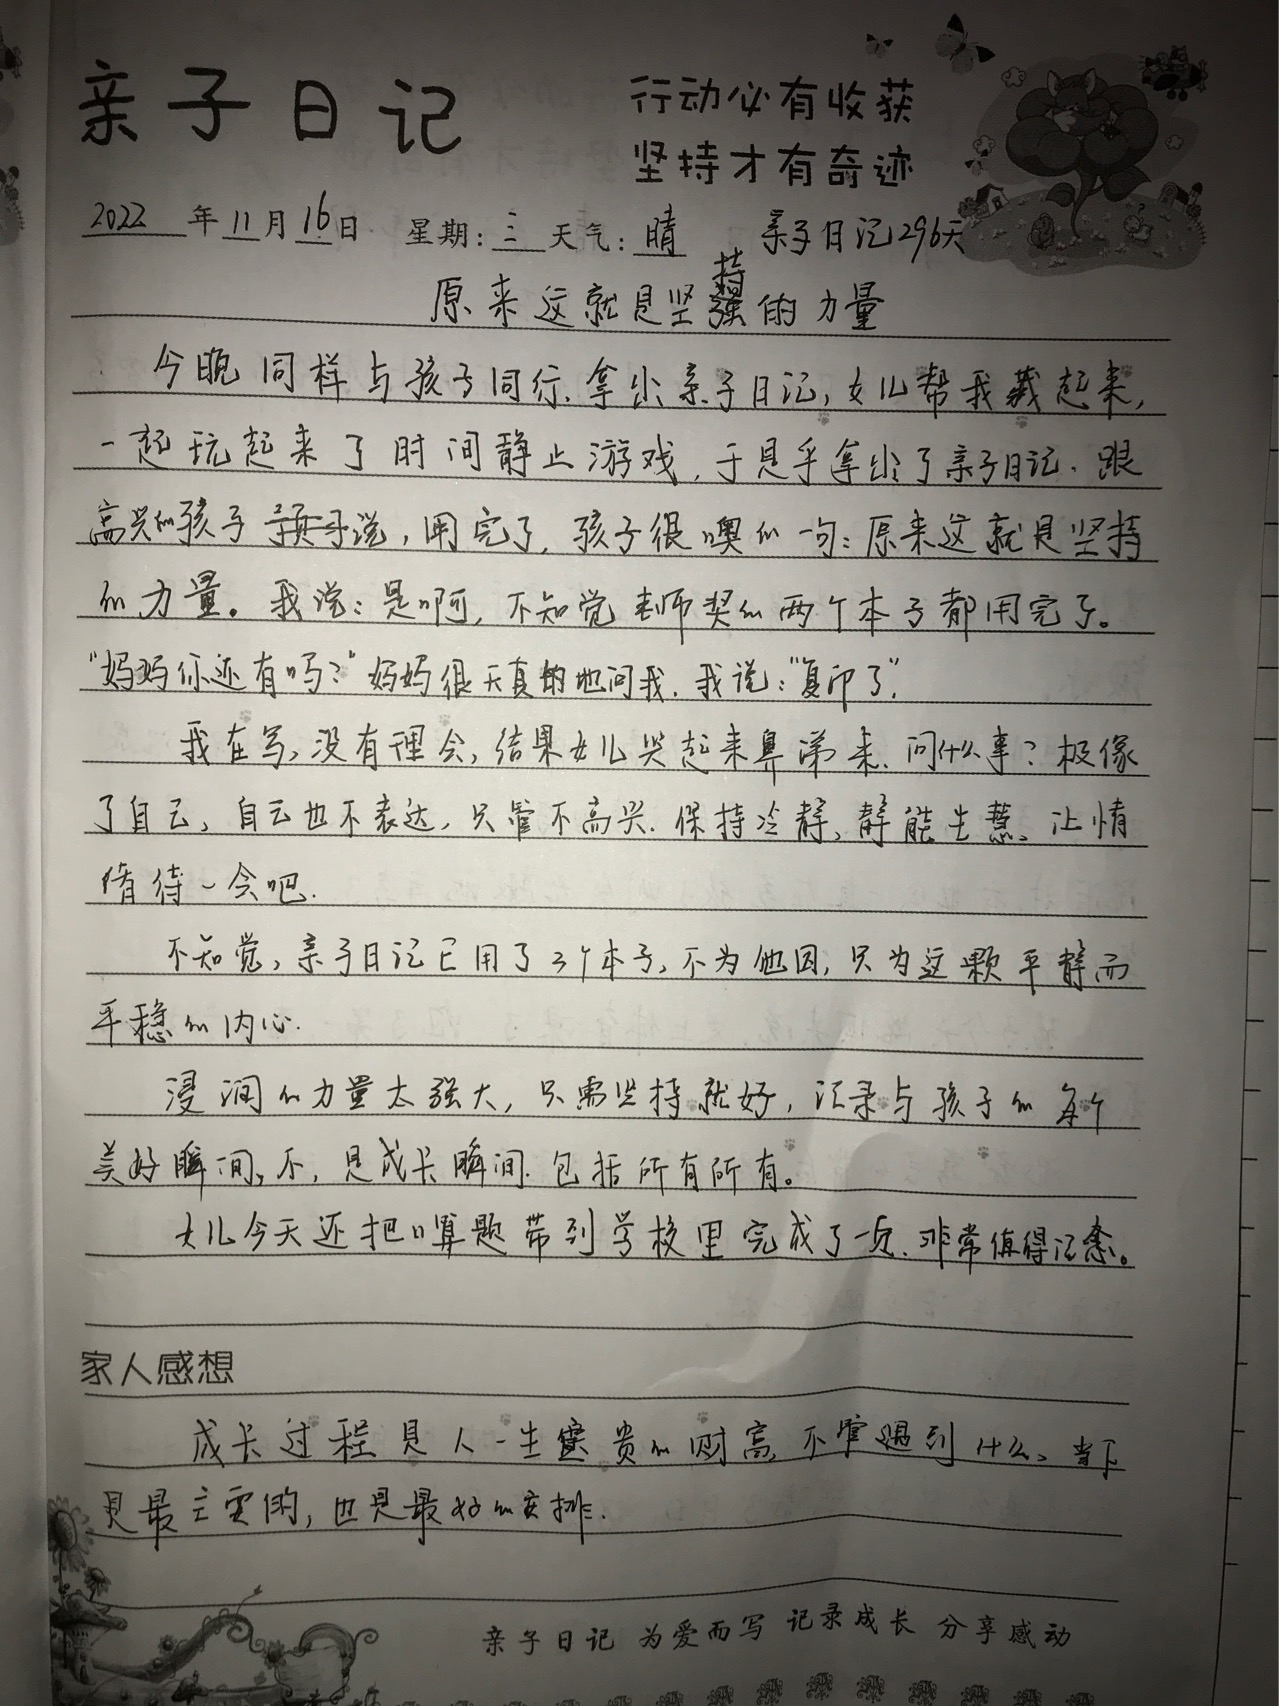 亲子日记
行动必有收获
坚持才有奇迹
2022年11月16日 星期:三 天气:晴 亲子日记296天
原来这就是坚持的力量
今晚同样与孩子同行.拿出亲子日记,女儿帮我藏起来,
一起玩起来了时间静止游戏,于是乎拿出了亲子日记.跟
高兴的孩子说,用完了,孩子很噢的一句:原来这就是坚持
的力量。我说:是啊,不知觉老师奖的两个本子都用完了。
"妈妈你还有吗?"妈妈很天真的地问我.我说:"复印了".
我在写,没有理会,结果女儿哭起来鼻涕来.问什么事?极像
了自己,自己也不表达,只管不高兴.保持冷静,静能生慧、让情
绪待一会吧.
不知觉,亲子日记已用了3个本子,不为他因,只为这颗平静而
平稳的内心.
浸润的力量太强大,只需坚持就好,记录与孩子的每个
美好瞬间,不,是成长瞬间.包括所有所有。
女儿今天还把口算题带到学校里完成了一页.非常值得记念。
家人感想
成长过程是人一生宝贵的财富,不管遇到什么、当下
是最真实的,也是最好的安排.
亲子日记 为爱而写 记录成长 分享感动